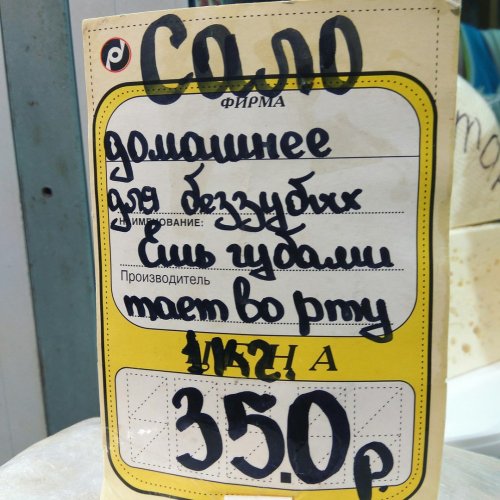 Сало
ФИРМА
домашнее
для беззубых
НАИМЕНОВАНИЕ:
Ешь губами
Производитель
тает во рту
ЦЕНА
1кг.
350р